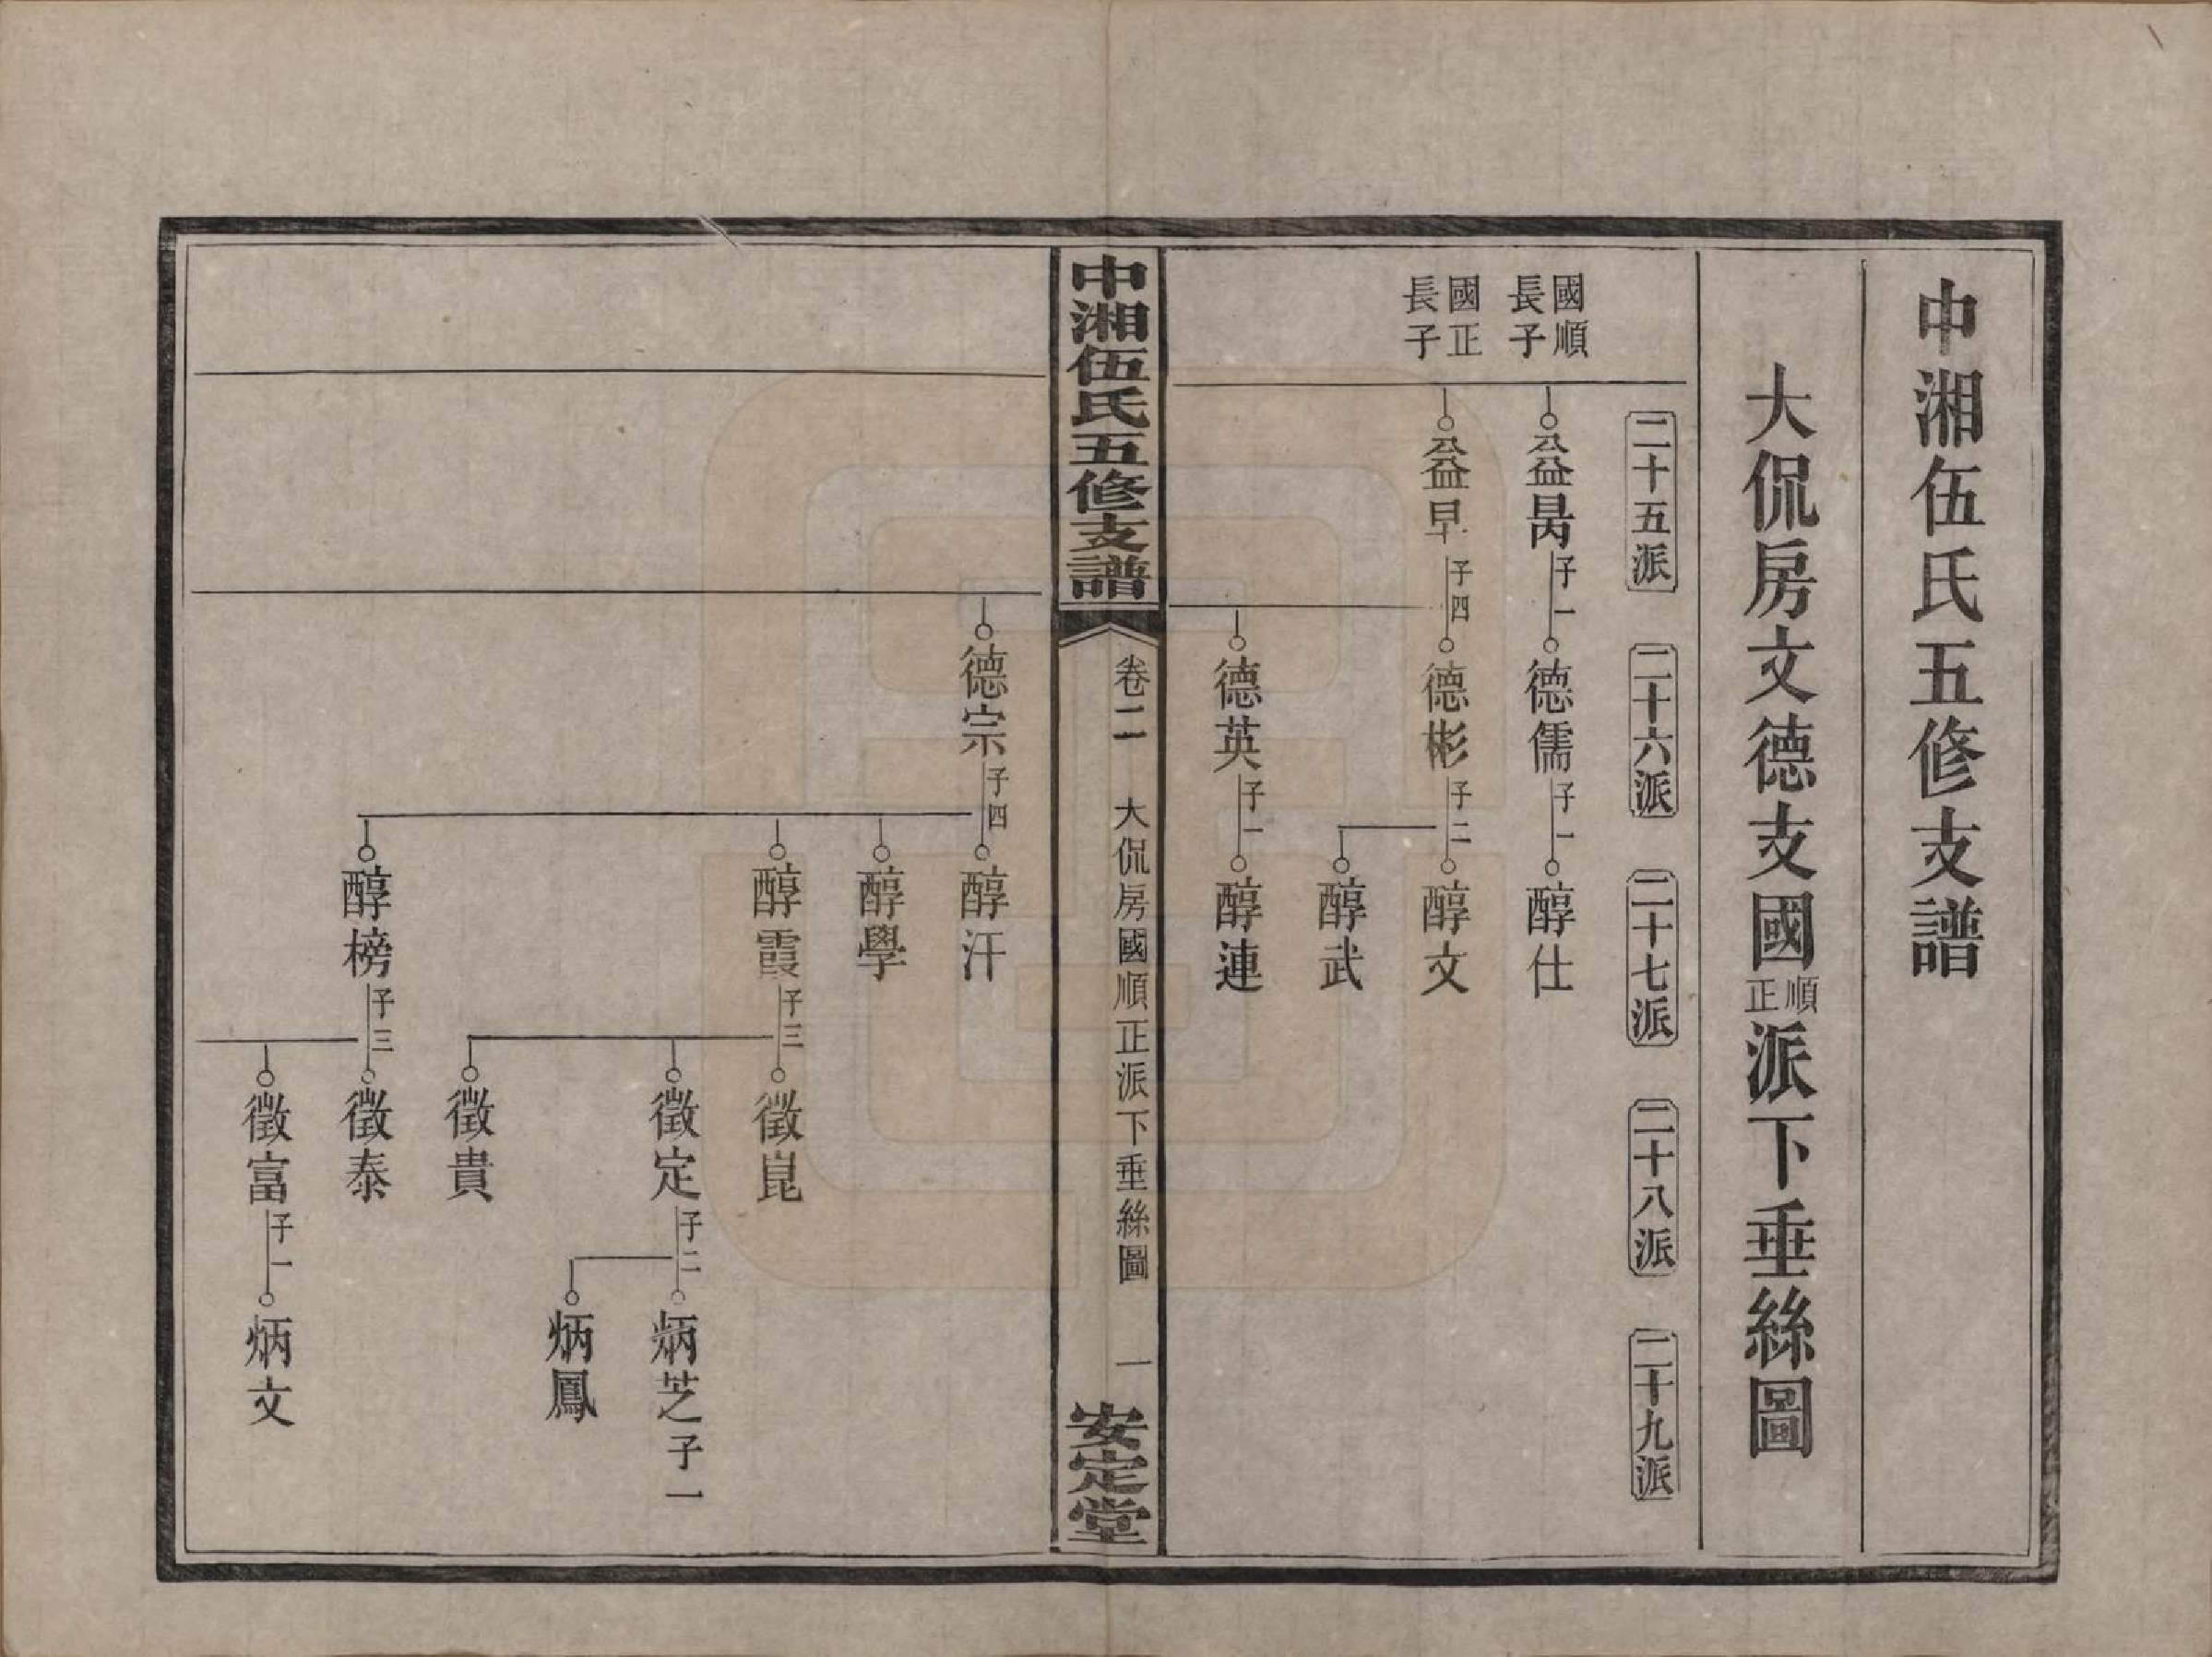 中湘伍氏五修支譜
大侃房文德支國順正派下垂絲圖
二十五派
二十六派
二十七派
二十八派
二十九派
國順
長子
益昺子一
德儒子一
醇仕
國正
長子
益早子四
德彬子二
醇文
醇武
德英子一
醇連
中湘伍氏五修支譜
卷二 大侃房國順正派下垂絲圖 一
安定堂
德宗子四
醇汗
醇學
醇霞子三
徵崑
徵定子二
炳芝子一
炳鳳
徵貴
醇榜子三
徵泰
徵富子一
炳文